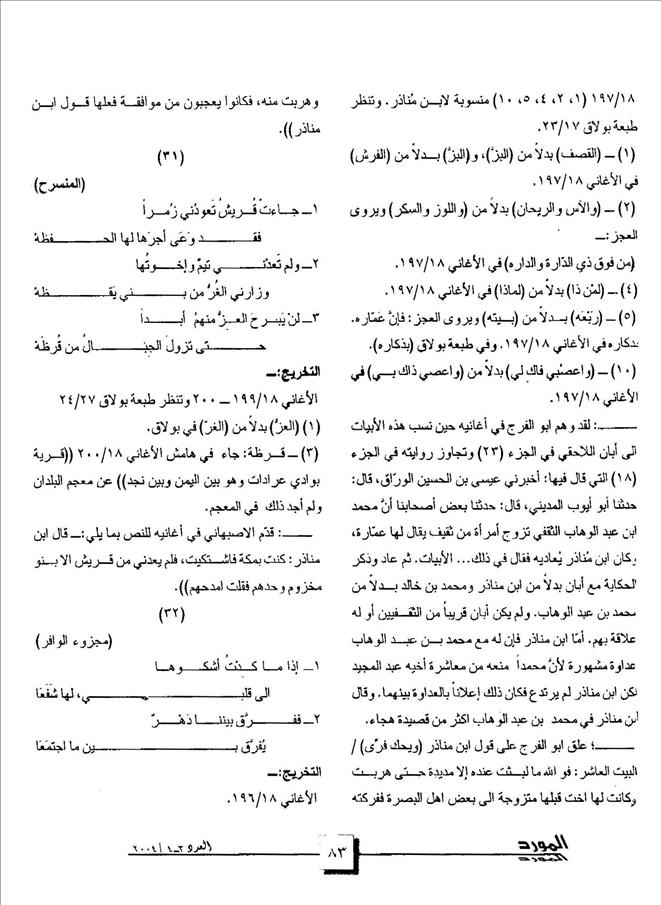 ١٩٧/١٨ (١، ٢، ٤، ٥، ١٠) منسوبة لابن مُناذر. وتنظر
طبعة بولاق ٢٣/١٧.
(١) ــ (القصف) بدلاً من (البزّ)، و(البزّ) بدلاً من (الفرش)
في الأغاني ١٩٧/١٨.
(٢) ــ (والآس والريحان) بدلاً من (واللوز والسكر) ويروى
العجز:ــ
(من فوق ذي الدّارة والداره) في الأغاني ١٩٧/١٨.
(٤) ــ (لمْن ذا) بدلاً من (لماذا) في الأغاني ١٩٧/١٨.
(٥) ــ (ربْعَه) بدلاً من (بيته) ويروى العجز: فإنَّ عمّاره.
بدكاره في الأغاني ١٩٧/١٨. وفي طبعة بولاق (بذكاره).
(١٠) ــ (واعصْبي فاك لي) بدلاً من (واعصي ذاك بي) في
الأغاني ١٩٧/١٨.
ــــ: لقد وهم ابو الفرج في أغانيه حين نسب هذه الأبيات
الى أبان اللاحقي في الجزء (٢٣) وتجاوز روايته في الجزء
(١٨) التي قال فيها: أخبرني عيسى بن الحسين الورّاق، قال:
حدثنا أبو أيوب المديني، قال: حدثنا بعض أصحابنا أنَّ محمد
ابن عبد الوهاب الثقفي تزوج أمرأة من ثقيف يقال لها عمّارة،
وكان ابن مُناذر يُعاديه فقال في ذلك... الأبيات. ثم عاد وذكر
الحكاية مع أبان بدلاً من ابن مناذر ومحمد بن خالد بدلاً من
محمد بن عبد الوهاب. ولم يكن أبان قريباً من الثقفيين أو له
علاقة بهم. أمّا ابن مناذر فإن له مع محمد بن عبد الوهاب
عداوة مشهورة لأنَّ محمداً منعه من معاشرة أخيه عبد المجيد
لكن ابن مناذر لم يرتدع فكان ذلك إعلاناً بالعداوة بينهما. وقال
ابن مناذر في محمد بن عبد الوهاب اكثر من قصيدة هجاء.
ــــ؛ علق ابو الفرج على قول ابن مناذر (ويحك فرّى) /
البيت العاشر: فو الله ما لبثت عنده إلا مديدة حتى هربت
وكانت لها اخت قبلها متزوجة الى بعض اهل البصرة ففركته
وهربت منه، فكانوا يعجبون من موافقة فعلها قول ابن
مناذر)).
(٣١)
(المنسرح)
١ــ جاءتْ قُريشُ تَعودُني زُمراً
فقد وَعَى أجرَها لها الحفظة
٢ــ ولم تَعدْني تيمٌ وإخوتُها
وزارني الغُرُّ من بني يَقظة
٣ــ لنْ يَبرحَ العزُّ منهمُ أبداً
حتى تزولَ الجبالُ من قُرظَة
التخريج:ــ
الأغاني ١٩٩/١٨ ــ ٢٠٠ وتنظر طبعة بولاق ٢٤/٢٧
(١) (العزُّ) بدلاً من (الغرّ) في بولاق.
(٣) ــ قرظة: جاء في هامش الأغاني ٢٠٠/١٨ ((قرية
بوادي عرادات وهو بين اليمن وبين نجد)) عن معجم البلدان
ولم أجد ذلك في المعجم.
ــــ: قدّم الاصبهاني في أغانيه للنص بما يلي:ــ قال ابن
مناذر: كنت بمكة فاشتكيت، فلم يعدني من قريش الا بنو
مخزوم وحدهم فقلت امدحهم)).
(٣٢)
(مجزوء الوافر)
١ــ إذا ما كدْتُ أشكوها
الى قلبي، لها شَفَعَا
٢ــ ففرَّق بيننا دَهْرٌ
يُفرّق بين ما اجتمَعَا
التخريج:ــ
الأغاني ١٩٦/١٨.
المورد
المورد
٨٣
العدد ٣ــ٤ / ٢٠٠٤